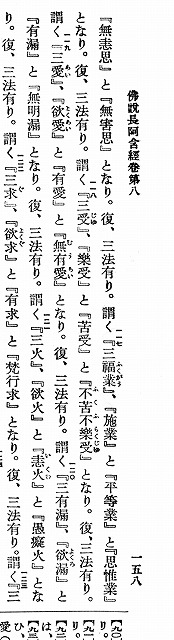 佛說長阿含經卷第八
一五八
『無恚思』と『無害思』となり。復、三法有り。謂く『三福業』、『施業』と『平等業』と『思惟業』
となり。復、三法有り。謂く『三受』、『樂受』と『苦受』と『不苦不樂受』となり。復、三法有り。
謂く『三愛』、『欲愛』と『有愛』と『無有愛』となり。復、三法有り。謂く『三有漏』、『欲漏』と
『有漏』と『無明漏』となり。復、三法有り。謂く『三火』、『欲火』と『恚火』と『愚癡火』とな
り。復、三法有り。謂く『三求』、『欲求』と『有求』と『梵行求』となり。復、三法有り。謂く『三